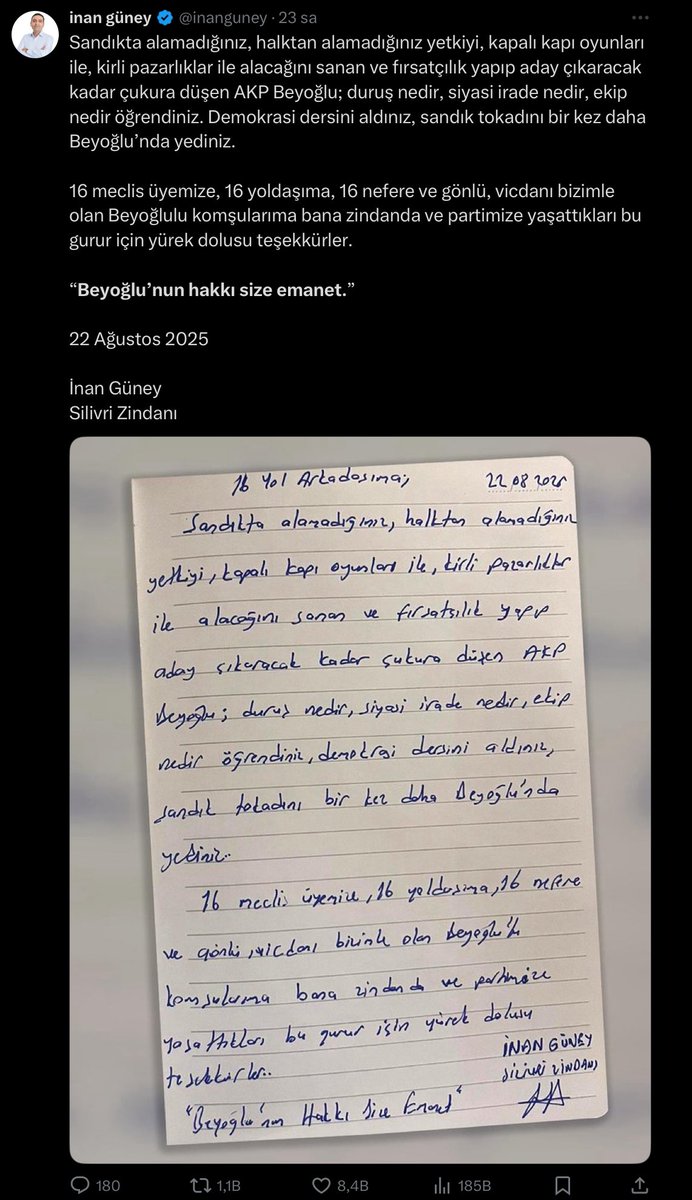 inan güney @inanguney · 23 sa
Sandıkta alamadığınız, halktan alamadığınız yetkiyi, kapalı kapı oyunları
ile, kirli pazarlıklar ile alacağını sanan ve fırsatçılık yapıp aday çıkaracak
kadar çukura düşen AKP Beyoğlu; duruş nedir, siyasi irade nedir, ekip
nedir öğrendiniz. Demokrasi dersini aldınız, sandık tokadını bir kez daha
Beyoğlu’nda yediniz.
16 meclis üyemize, 16 yoldaşıma, 16 nefere ve gönlü, vicdanı bizimle
olan Beyoğlulu komşularıma bana zindanda ve partimize yaşattıkları bu
gurur için yürek dolusu teşekkürler.
“Beyoğlu’nun hakkı size emanet.”
22 Ağustos 2025
İnan Güney
Silivri Zindanı
16 Yol Arkadaşıma; 22.08.2025
Sandıkta alamadığınız, halktan alamadığınız
yetkiyi, kapalı kapı oyunları ile, kirli pazarlıklar
ile alacağını sanan ve fırsatçılık yapıp
aday çıkaracak kadar çukura düşen AKP
Beyoğlu; duruş nedir, siyasi irade nedir, ekip
nedir öğrendiniz, demokrasi dersini aldınız,
sandık tokadını bir kez daha Beyoğlu'nda
yediniz..
16 meclis üyemize, 16 yoldaşıma, 16 nefere
ve gönlü, vicdanı bizimle olan Beyoğlu'lu
komşularıma bana zindanda ve partimize
yaşattıkları bu gurur için yürek dolusu
teşekkürler..
İNAN GÜNEY
SİLİVRİ ZİNDANI
"Beyoğlu'nun Hakkı Size Emanet"
180 1,1B 8,4B 185B